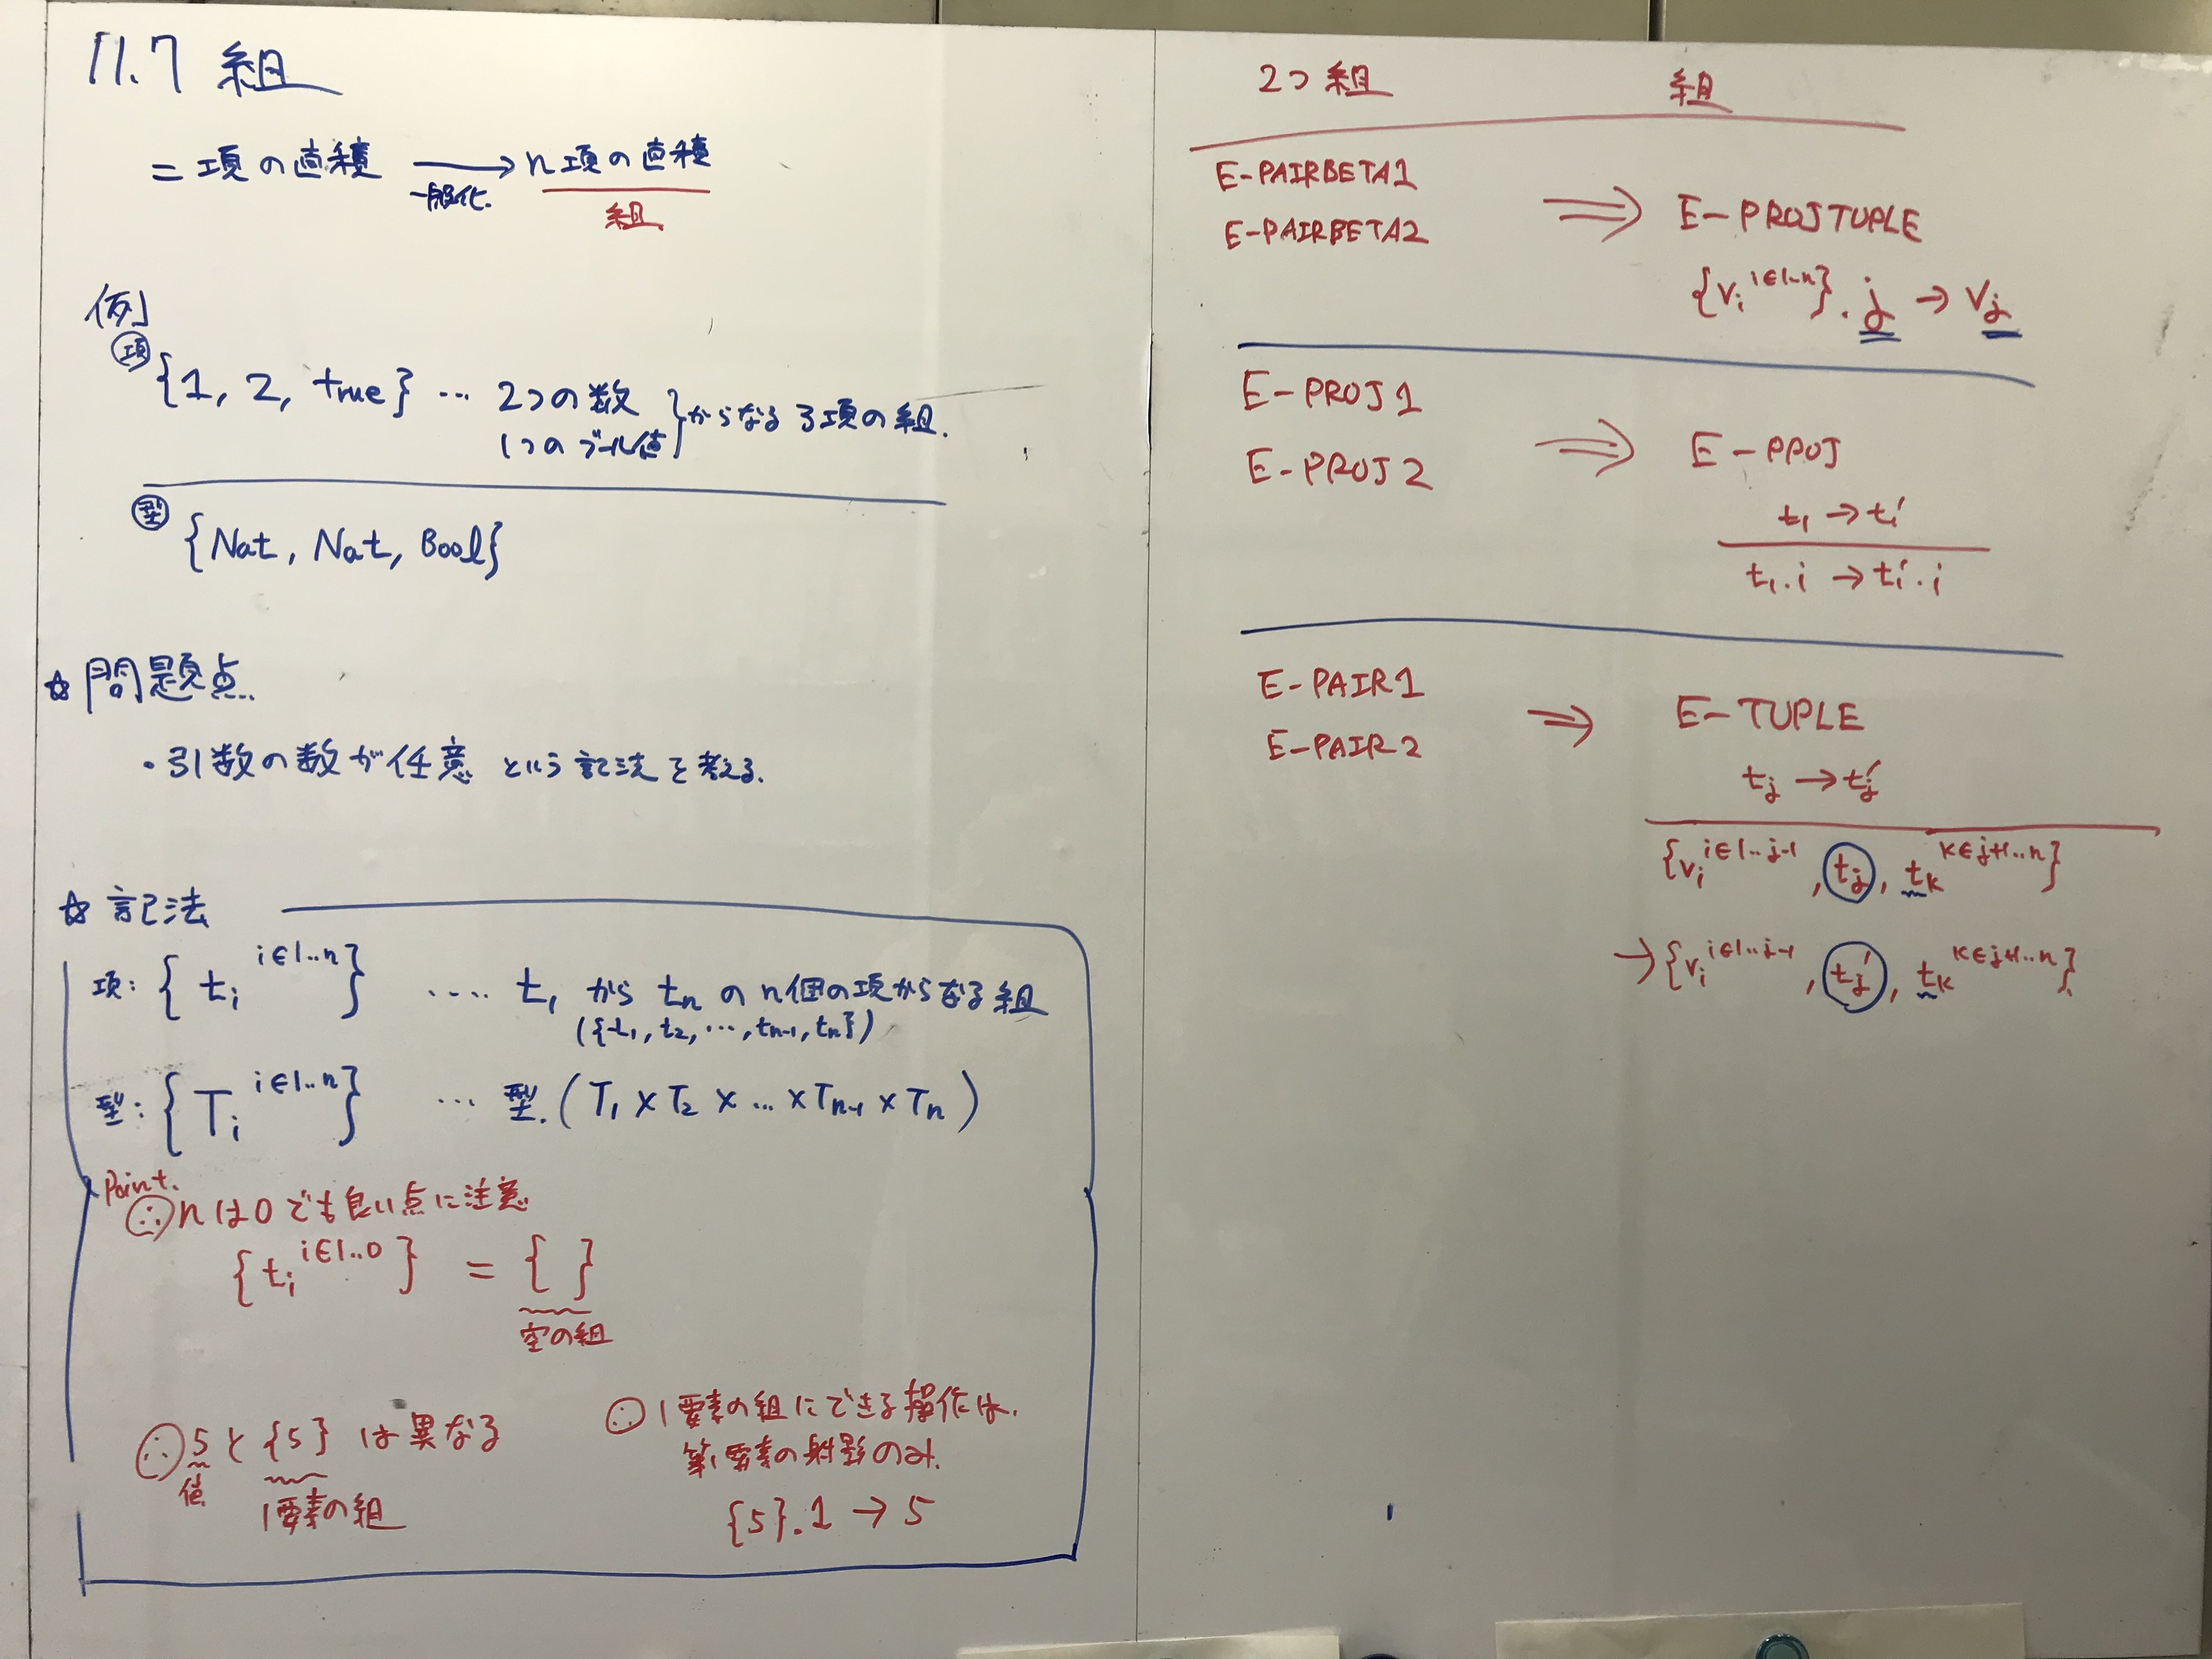 11.7 組
二項の直積 → n項の直積
一般化.
組
例
項
{1, 2, true} … 2つの数
1つのブール値 }からなる 3項の組.
型
{Nat, Nat, Bool}
☆ 問題点
・引数の数が任意 という記法を考える.
☆ 記法
項: { t_i^{i∈1..n} } …. t_1 から t_n の n個の項からなる組
({t_1, t_2, …, t_{n-1}, t_n})
型: { T_i^{i∈1..n} } … 型. (T_1 × T_2 × … × T_{n-1} × T_n)
Point.
∵ nは0でも良い点に注意
{ t_i^{i∈1..0} } = { }
空の組
∵ 5 と {5} は異なる
値
1要素の組
∵ 1要素の組にできる操作は.
第1要素の射影のみ.
{5}.1 → 5
2つ組 組
E-PAIRBETA1
E-PAIRBETA2
⇒ E-PROJTUPLE
{v_i^{i∈1..n}}.j → v_j
E-PROJ1
E-PROJ2
⇒ E-PROJ
t_1 → t_1'
t_1.i → t_1'.i
E-PAIR1
E-PAIR2
⇒ E-TUPLE
t_j → t_j'
{v_i^{i∈1..j-1}, t_j, t_k^{k∈j+1..n}}
→ {v_i^{i∈1..j-1}, t_j', t_k^{k∈j+1..n}}